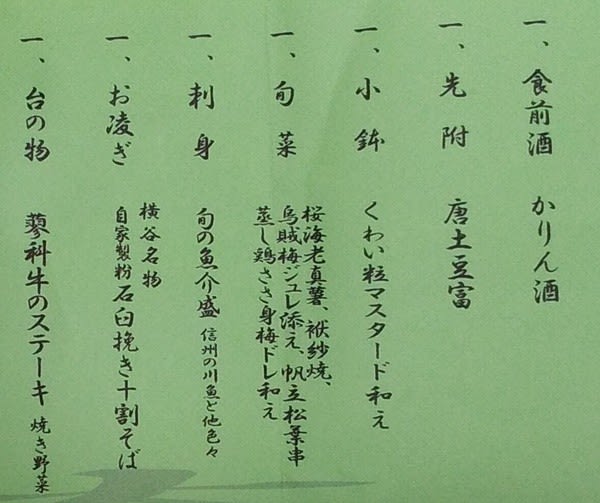 一、食前酒 かりん酒
一、先附 唐土豆富
一、小鉢 くわい粒マスタード和え
一、旬菜 桜海老真薯、袱紗焼、
烏賊梅ジュレ添え、帆立松葉串
蒸し鶏ささ身梅ドレ和え
一、刺身 旬の魚介盛 信州の川魚と他色々
一、お凌ぎ 横谷名物
自家製粉石臼挽き十割そば
一、台の物 蓼科牛のステーキ 焼き野菜